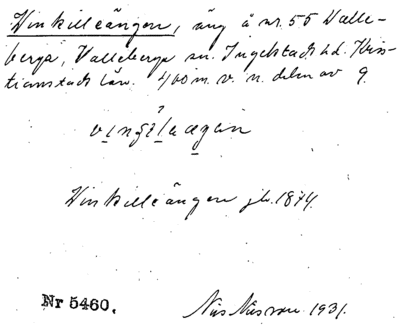 Vinkelleängen, äng å nr. 55 Valle-
berga, Valleberga sn. Ingelstads hd. Kris-
tianstads län. 400 m. v. n. delen av 9.
Vinkelleängen jb. 1874.
Nr 5460.
Nils Nilsson 1931.